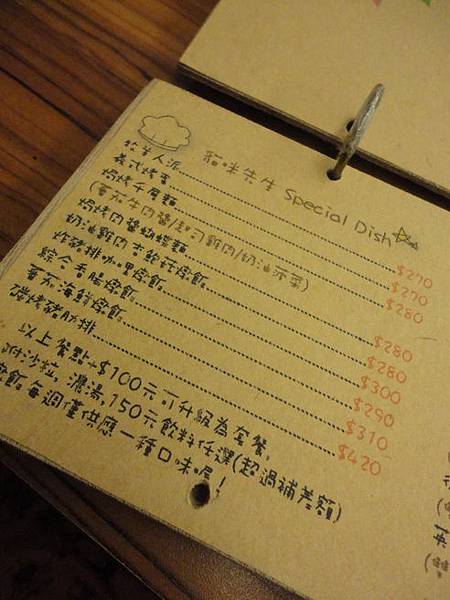 貓咪先生 Special Dish
牧羊人派 $270
義式烤蛋 $270
焗烤千層麵 $280
(蕃茄牛肉醬/起司雞肉/奶油菠菜)
焗烤肉醬螺旋麵 $280
奶油雞肉杏鮑菇燉飯 $280
炸豬排咖哩燉飯 $300
綜合香腸燉飯 $290
蕃茄海鮮燉飯 $310
碳烤豬肋排 $420
以上餐點+$100元可升級為套餐,
附沙拉, 濃湯, 150元飲料任選(超過補差額)
燉飯每週僅供應一種口味喔!